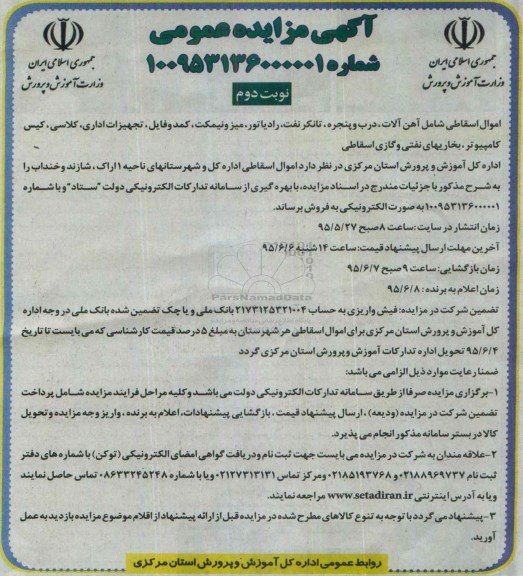 آگهی مزایده عمومی
شماره ۱۰۰۹۵۳۱۳۶۰۰۰۰۰۱
جمهوری اسلامی ایران
وزارت آموزش و پرورش
جمهوری اسلامی ایران
وزارت آموزش و پرورش
نوبت دوم
اموال اسقاطی شامل آهن آلات، درب و پنجره، تانکر نفت، رادیاتور، میز و نیمکت، کمد و فایل، تجهیزات اداری، کلاسی، کیس
کامپیوتر، بخاریهای نفتی و گازی اسقاطی
اداره کل آموزش و پرورش استان مرکزی در نظر دارد اموال اسقاطی اداره کل و شهرستانهای ناحیه ۱ اراک، شازند و خنداب را
به شرح مذکور با جزئیات مندرج در اسناد مزایده، با بهره گیری از سامانه تدارکات الکترونیکی دولت "ستاد" و با شماره
۱۰۰۹۵۳۱۳۶۰۰۰۰۰۱ به صورت الکترونیکی به فروش برساند.
زمان انتشار در سایت: ساعت ۸ صبح ۹۵/۵/۲۷
آخرین مهلت ارسال پیشنهاد قیمت: ساعت ۱۴ شنبه ۹۵/۶/۶
زمان بازگشایی: ساعت ۹ صبح ۹۵/۶/۷
زمان اعلام به برنده: ۹۵/۶/۸
ParsNamadData
تضمین شرکت در مزایده: فیش واریزی به حساب ۲۱۷۳۱۲۵۳۲۱۰۰۴ بانک ملی و یا چک تضمین شده بانک ملی در وجه اداره
کل آموزش و پرورش استان مرکزی برای اموال اسقاطی هر شهرستان به مبلغ ۵ درصد قیمت کارشناسی که می بایست تا تاریخ
۹۵/۶/۴ تحویل اداره تدارکات آموزش و پرورش استان مرکزی گردد
ضمنا رعایت موارد ذیل الزامی می باشد:
۱-برگزاری مزایده صرفا از طریق سامانه تدارکات الکترونیکی دولت می باشد و کلیه مراحل فرایند مزایده شامل پرداخت
تضمین شرکت در مزایده (ودیعه)، ارسال پیشنهاد قیمت، بازگشایی پیشنهادات، اعلام به برنده، واریز وجه مزایده و تحویل
کالا در بستر سامانه مذکور انجام می پذیرد.
۲-علاقه مندان به شرکت در مزایده می بایست جهت ثبت نام و دریافت گواهی امضای الکترونیکی (توکن) با شماره های دفتر
ثبت نام ۰۲۱۸۸۹۶۹۷۳۷ و ۰۲۱۸۵۱۹۳۷۶۸ و مرکز تماس ۰۲۱۲۷۳۱۳۱۳۱ و یا با شماره ۰۸۶۳۳۲۴۵۲۴۸ تماس حاصل نمایند
و یا به آدرس اینترنتی www.setadiran.ir مراجعه نمایند.
۳-پیشنهاد می گردد با توجه به تنوع کالاهای مطرح شده در مزایده قبل از ارائه پیشنهاد از اقلام موضوع مزایده بازدید به عمل
آورید.
روابط عمومی اداره کل آموزش و پرورش استان مرکزی